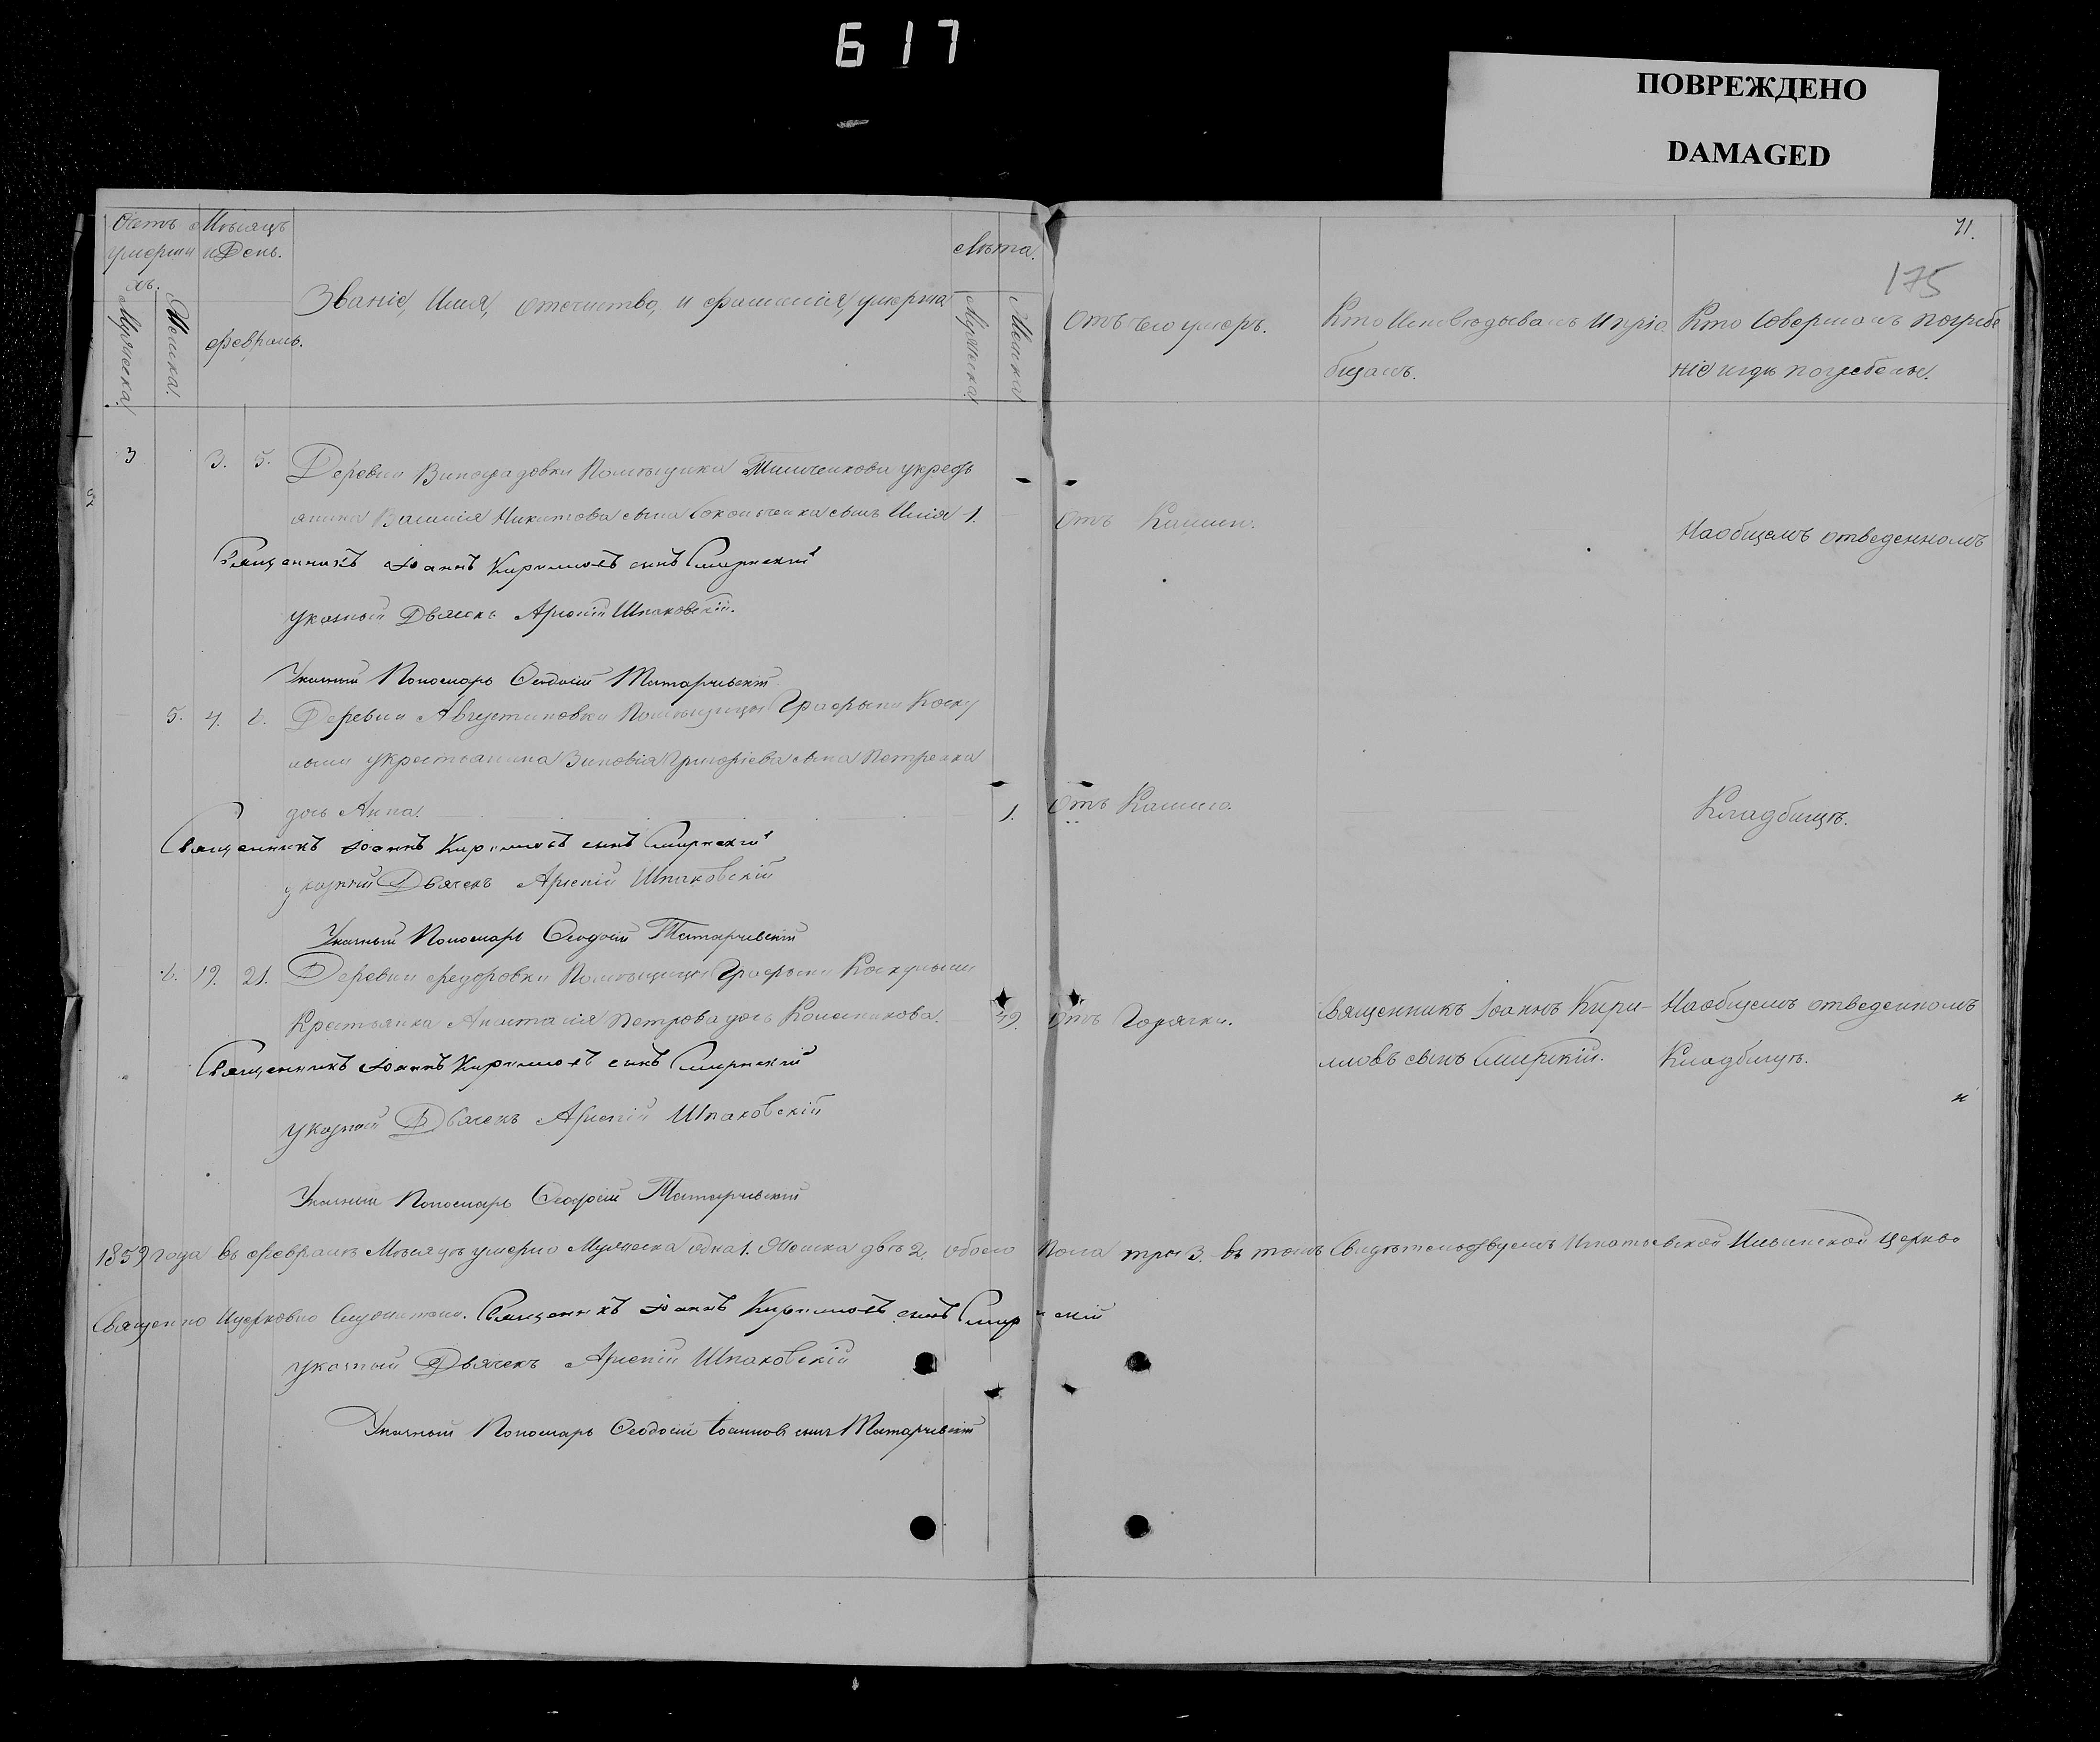 617
ПОВРЕЖДЕНО
DAMAGED
71.
175
Мѣсяцъ
и День.
Лѣта.
Званіе, Имя, отечество, и фамилія, умерша
февраль.
Мужеска
Женска.
Мужеска
Женска
Отъ чего умеръ.
Кто Исповѣдывалъ и пріо
бщалъ.
Кто Совершалъ погребе
ніе и гдѣ погребены.
3 3. 5. Деревни Виноградовки Помѣщика
Василія Никитова сына сынъ Илія 1. Отъ Кашли.
На общемъ отведенномъ
Священникъ Іоаннъ Кириловъ сынъ Смирнскій
указный Дьячекъ Арсеній Шпаковскій.
Указный Пономарь Феодосій Татарчевскій
5. 4. 6. Деревни Августиновки Помѣщицы Графини
крестьянина Зиновія Григоріева сына Петренка
дочь Анна. 1. Отъ Кашлю. Кладбищѣ.
Священникъ Іоаннъ Кириловъ сынъ Смирнскій
указный Дьячекъ Арсеній Шпаковскій
Указный Пономарь Феодосій Татарчевскій
6. 19. 21. Деревни Федоровки Помѣщицы Графини
Крестьянка Анастасія Петрова дочь Колесникова. Отъ Горячки. Священникъ Іоаннъ Кири- На общемъ отведенномъ
ловъ сынъ Смирнскій. Кладбищѣ.
Священникъ Іоаннъ Кириловъ сынъ Смирнскій
указный Дьячекъ Арсеній Шпаковскій
Указный Пономарь Феодосій Татарчевскій
1859 года въ февралѣ Мѣсяцѣ умерло Мужеска одна 1. Женска двѣ 2. обоего Пола три 3. въ томъ Свидѣтельствуемъ Игнатьевской Ильинской церкви
Священно и церковно служители. Священникъ Іоаннъ Кириловъ сынъ Смирнскій
указный Дьячекъ Арсеній Шпаковскій
Указный Пономарь Феодосій Іоанновъ сынъ Татарчевскій